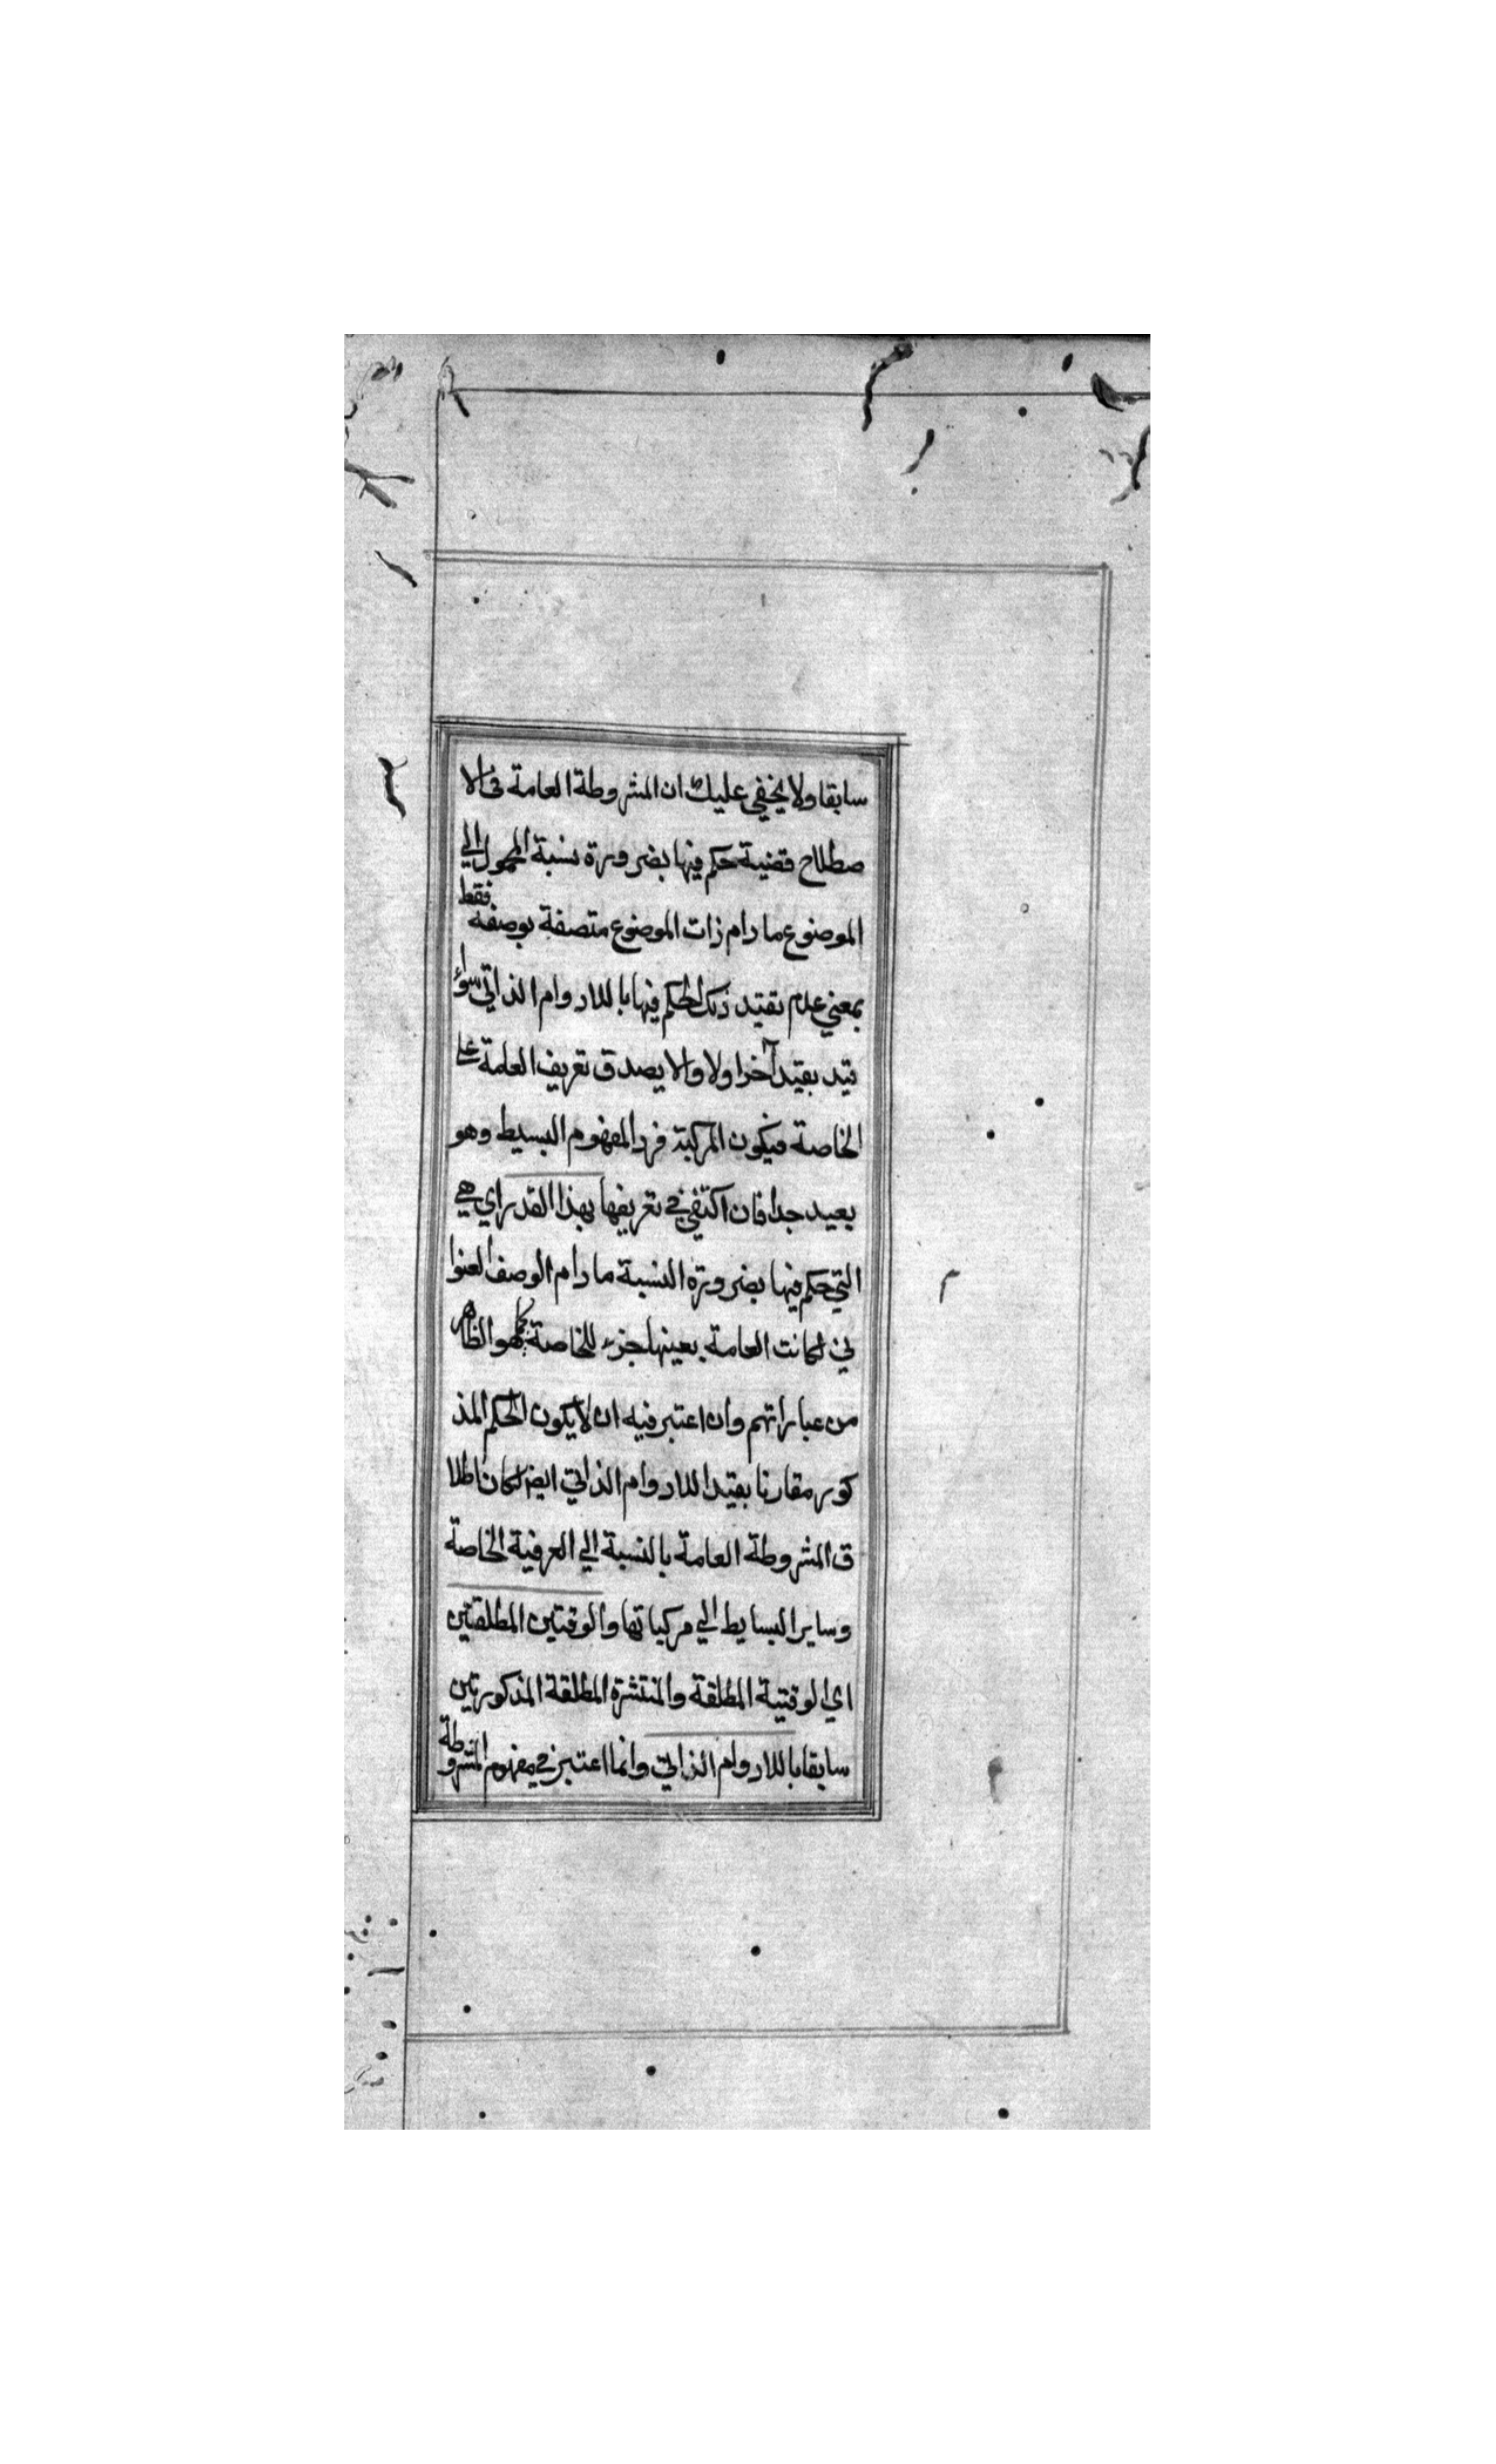 سابقا ولا يخفي عليك ان المشروطة العامة في الا
صطلاح قضية حكم فيها بضرورة نسبة المحمول الي
الموضوع ما دام ذات الموضوع متصفة بوصفه فقط
بمعني عدم تقيد ذلك الحكم فيها باللادوام الذاتي سواء
قيد بقيد آخر اولا والا يصدق تعريف العامة علي
الخاصة فيكون المركبة فردا لمفهوم البسيط وهو
بعيد جدا فان اكتفي في تعريفها بهذا القدر اي هي
التي حكم فيها بضرورة النسبة ما دام الوصف العنوا
ني لكانت العامة بعينها جزء للخاصة كما هو الظاهر
من عباراتهم وان اعتبر فيه ان لا يكون الحكم المذ
كور مقارنا بقيد اللادوام الذاتي ايضا لكان اطلا
ق المشروطة العامة بالنسبة الي العرفية الخاصة
وساير البسايط الي مركباتها والوقتيتين المطلقتين
اي الوقتية المطلقة والمنتشرة المطلقة المذكورتين
سابقا باللادوام الذاتي وانما اعتبر في مفهوم المشروطة